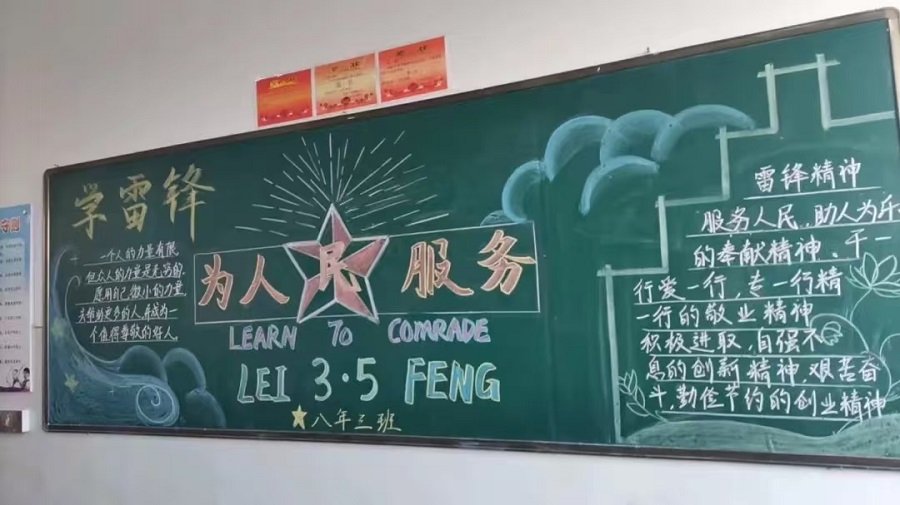 学雷锋
一个人的力量有限
但众人的力量是无穷的
愿用自己微小的力量
去帮助更多的人,并成为一
个值得尊敬的好人.
为人民服务
LEARN TO COMRADE
LEI 3·5 FENG
八年三班
雷锋精神
服务人民,助人为乐
的奉献精神、干一
行爱一行,专一行精
一行的敬业精神
积极进取,自强不
息的创新精神,艰苦奋
斗,勤俭节约的创业精神